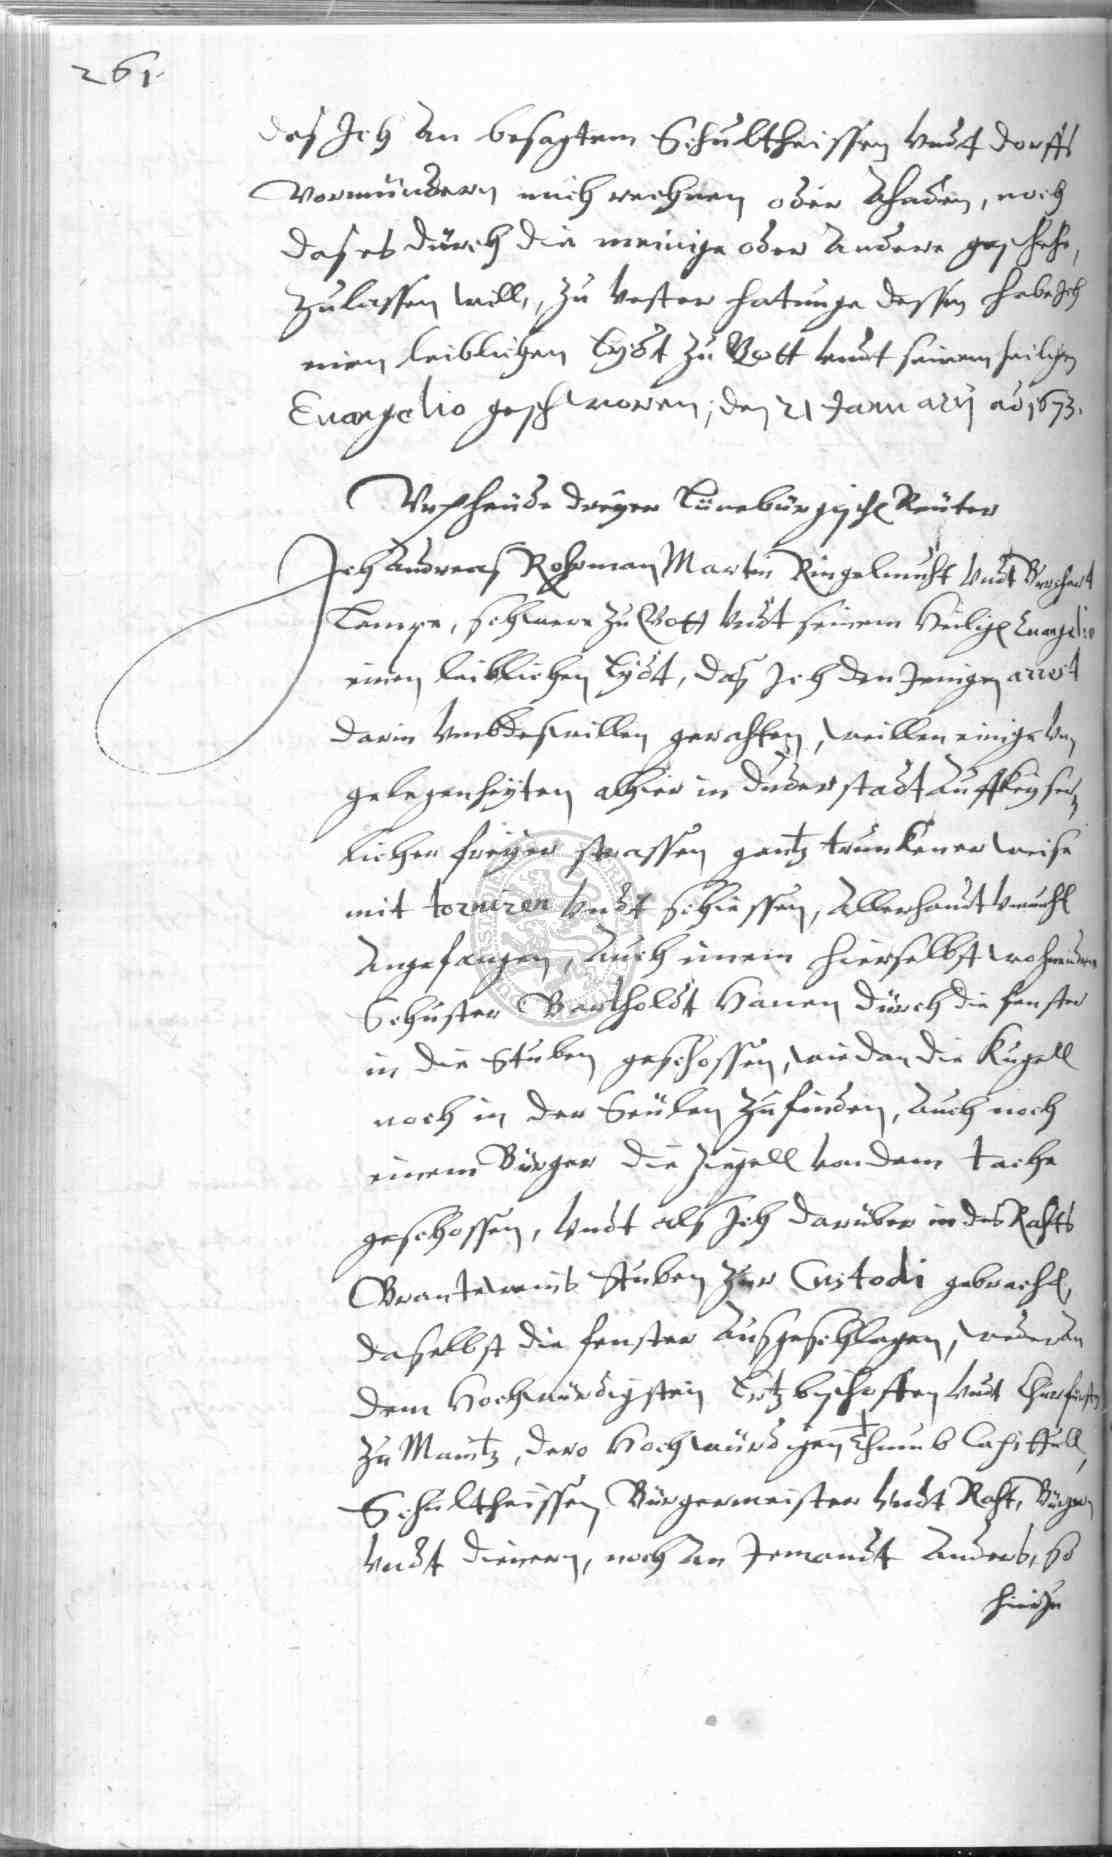 261.
das Ich an besagtem Schultheissen undt dorffs
Vormündern mich rechnen oder ahnden, noch
das es dürch die meinige oder andere geschehe,
zulassen will, zu vester haltunge dessen habe Ich
einen leiblichen Eydt zu Gott undt seinem heiligen
Euangelio geschworen, den 21 Januarij ao 1673.
Urpheude dreyer Lünebürgische Reüter
Ich Andreas Rohrman Marten Ringelmuht undt Borchert
Lampe, schwere zu Gott undt seinem Heilige Euangelio
einen leiblichen Eydt, das Ich den Jenigen arrest
darin umbdeswillen gerahten, weillen einige Un
gelegenheyten alhier in duderstadt auff Keyser
licher freyer strassen gantz trunkener weise
mit torniren undt schiessen, allerhandt
angefangen, auch einem hierselbst wohnenden
Schuster Bartholdt Hanen dürch die fenster
in die Stuben geschossen, wie dan die Kugell
noch in der Seülen zufinden, auch noch
einem Bürger die ziegell von dem tache
geschossen, undt als Ich darüber in des Rahts
Branteweins stuben zur Custodi gebracht,
daselbst die fenster ausgeschlagen, weder an
dem Hochwürdigsten Ertzbischoffen undt Churfürsten
zu Maintz, dero Hochwürdigen Thumb Capittull,
Schultheissen Bürgermeister undt Raht, Bürgern
undt dienern, noch an Jemandt anders, so
hierzu